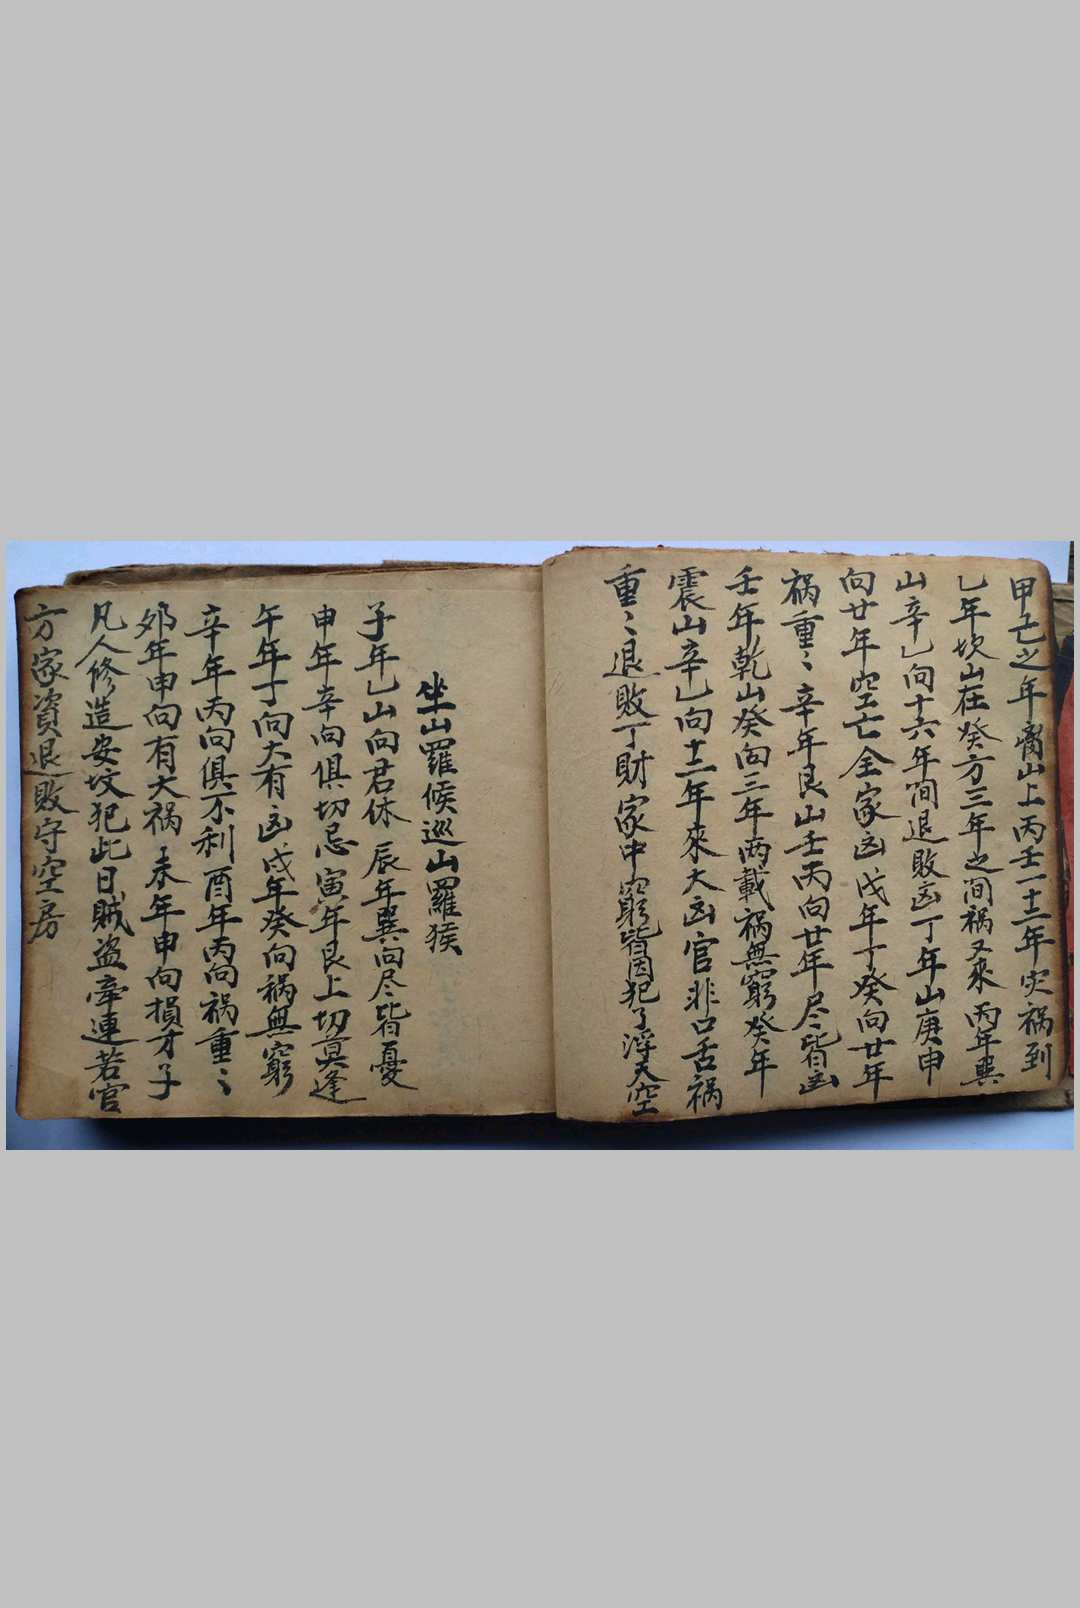 甲己之年離山上丙壬一十二年灾祸到
乙年坎山在癸方三年之间祸又来丙年巽
山辛乙向十六年间退敗凶丁年山庚申
向廿年空亡全家凶戊年丁癸向廿年
祸重〻辛年艮山壬丙向廿年尽皆凶
壬年乾山癸向三年两載祸無窮癸年
震山辛乙向十二年來大凶官非口舌祸
重〻退敗丁財家中窮皆因犯了浮天空
坐山羅候巡山羅猴
子年乙山向君休辰年巽向尽皆憂
申年辛向俱切忌寅年艮上切莫逢
午年丁向大有凶戌年癸向祸無窮
辛年丙向俱不利酉年丙向祸重〻
夘年申向有大祸年申向損才子
凡人修造安坟犯此日賊盗牽連若官
方家資退敗守空房